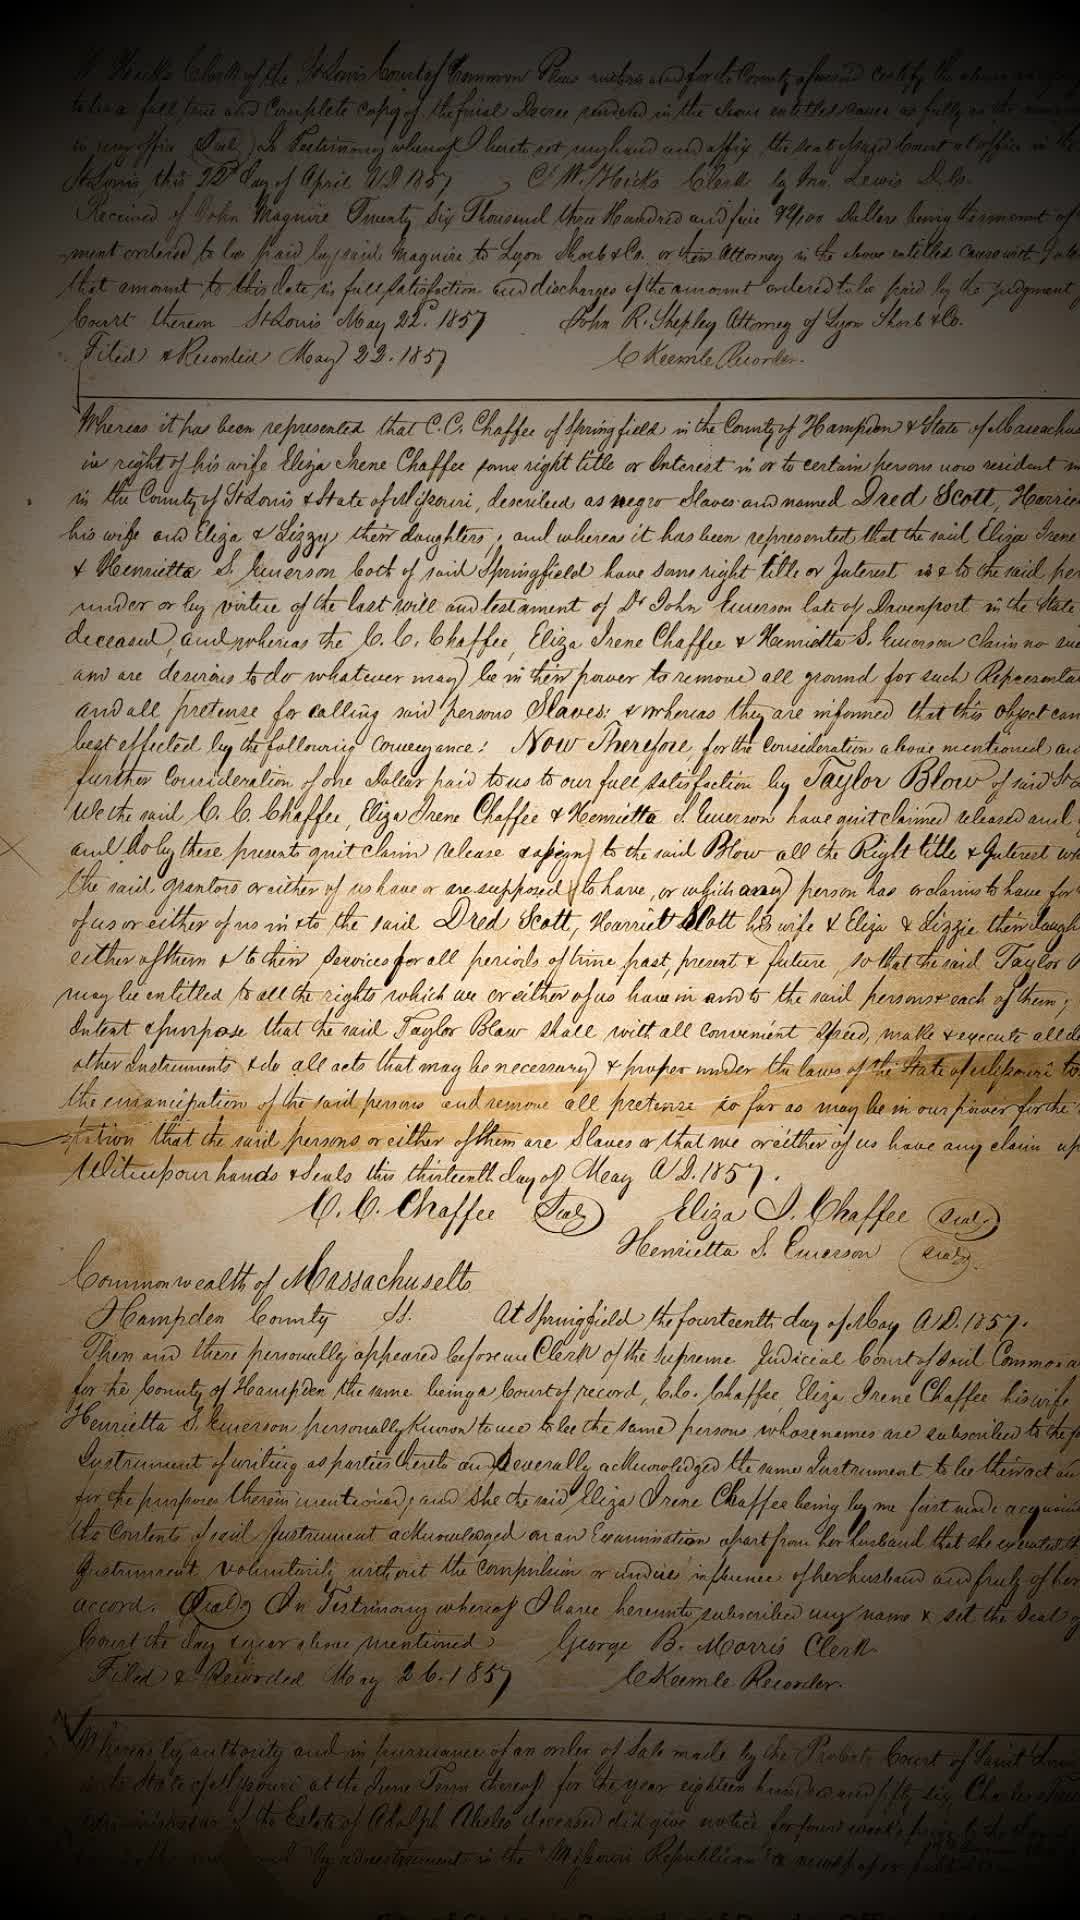 Hicks Clerk of the St Louis Court of Common Pleas within and for the County aforesaid certify the above
to be a full true and complete copy of the final Decree rendered in the above entitled cause as fully as the
in my office (Seal) In Testimony whereof I hereto set my hand and affix the seal of said Court at office in the
St Louis, this 22d day of April A D 1857 C W. Hicks Clerk by Jno. Lewis D.C.
Received of John Maguire Twenty Six Thousand three Hundred and five 92/100 Dollars being the amount of
ment ordered to be paid by said Maguire to Lyon Shorb & Co. or their Attorney in the above entitled cause with
that amount to this date in full satisfaction and discharges of the amount ordered to be paid by the judgment
Court therein St Louis May 22d 1857 John R. Shepley Attorney of Lyon Shorb & Co.
Filed & Recorded May 22. 1857 C Keemle Recorder.
Whereas it has been represented that C. C. Chaffee of Springfield in the County of Hampden & State of Massachus
in right of his wife Eliza Irene Chaffee some right title or Interest in or to certain persons now resident
in the County of St Louis & State of Missouri, described as negro Slaves and named Dred Scott, Harrie
his wife and Eliza & Lizzy their daughters; and whereas it has been represented that the said Eliza Irene
& Henrietta S. Emerson both of said Springfield have some right title or Interest in & to the said per
under or by virtue of the last will and testament of Dr John Emerson late of Davenport in the State
deceased, and whereas the C. C. Chaffee, Eliza Irene Chaffee & Henrietta S. Emerson claim no su
and are desirous to do whatever may be in their power to remove all ground for such Representa
and all pretense for calling said persons Slaves: & whereas they are informed that this object can
best effected by the following conveyance: Now Therefore for the consideration above mentioned an
further Consideration of one dollar paid to us to our full satisfaction by Taylor Blow of said St
We the said C. C. Chaffee, Eliza Irene Chaffee & Henrietta S. Emerson have quit claimed released and
and do by these presents quit claim release & assign to the said Blow all the Right title & Interest wh
the said grantors or either of us have or are supposed to have, or which any person has or claims to have for
of us or either of us in & to the said Dred Scott, Harriet Scott his wife & Eliza & Lizzie their daugh
either of them & to their services for all periods of time past, present & future, so that the said Taylor B
may be entitled to all the rights which we or either of us have in and to the said persons & each of them;
intent & purpose that the said Taylor Blow shall with all convenient speed, make & execute all de
other Instruments & do all acts that may be necessary & proper under the laws of the State of Missouri to
the emancipation of the said persons and remove all pretense so far as may be in our power for the
tation that the said persons or either of them are Slaves or that we or either of us have any claim up
Witness our hands & Seals this thirteenth day of May A D. 1857.
C. C. Chaffee (Seal) Eliza I. Chaffee (Seal)
Henrietta S. Emerson (Seal)
Commonwealth of Massachusetts
Hampden County SS. At Springfield the fourteenth day of May A D. 1857.
Then and there personally appeared before me Clerk of the Supreme Judicial Court of said Commonw
for the County of Hampden the same being a Court of record, C.C. Chaffee, Eliza Irene Chaffee his wife
Henrietta S. Emerson personally known to me to be the same persons whose names are subscribed to the fo
Instrument of writing as parties thereto and severally acknowledged the same Instrument to be their act an
for the purposes therein mentioned; and she the said Eliza Irene Chaffee being by me first made acquain
the contents of said Instrument acknowledged on an Examination apart from her husband that she executed th
Instrument voluntarily without the compulsion or undue influence of her husband and freely of her
accord. (Seal) In Testimony whereof I have hereunto subscribed my name & set the Seal of
Court the day & year above mentioned George B. Morris Clerk.
Filed & Recorded May 26. 1857 C Keemle Recorder.
Whereas by authority and in pursuance of an order of Sale made by the Probate Court of Saint Louis
State of Missouri at the June Term thereof for the year eighteen hundred and fifty six, Charles
administrator of the Estate of Adolph Abeles deceased did give notice for four weeks prior to the
by advertisement in the "Missouri Republican" a newspaper